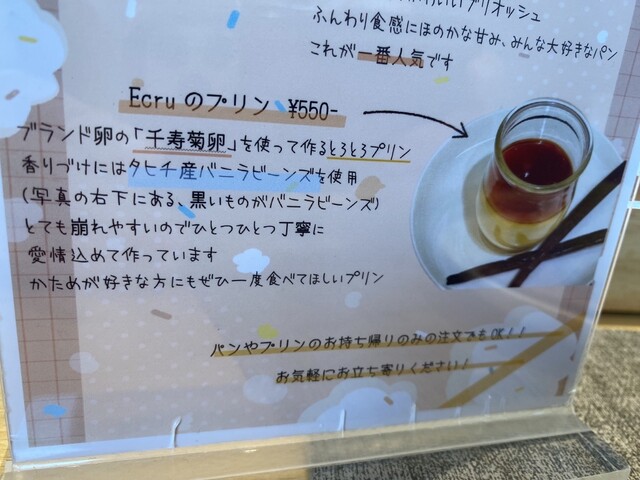 ブリオッシュ
ふんわり食感にほのかな甘み、みんな大好きなパン
これが一番人気です
Ecruのプリン ¥550-
ブランド卵の「千寿菊卵」を使って作るとろとろプリン
香りづけにはタヒチ産バニラビーンズを使用
(写真の右下にある、黒いものがバニラビーンズ)
とても崩れやすいのでひとつひとつ丁寧に
愛情込めて作っています
かためが好きな方にもぜひ一度食べてほしいプリン
パンやプリンのお持ち帰りのみの注文でもOK!!
お気軽にお立ち寄りください!